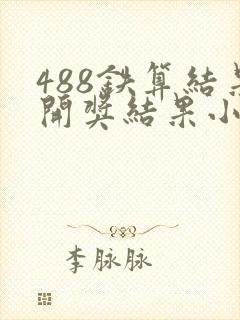 488鉄算结果
開奖结果小
李脉脉